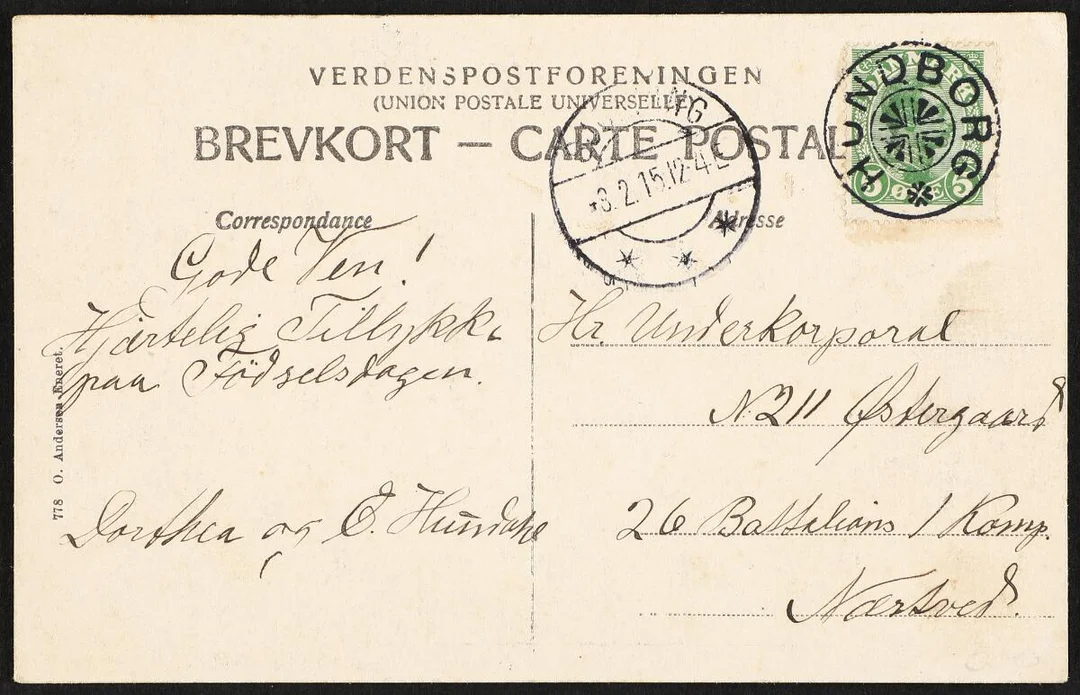 VERDENSPOSTFORENINGEN
(UNION POSTALE UNIVERSELLE)
BREVKORT — CARTE POSTALE
HUNDBORG
5 ØRE 5
8.2.15.12-4
Correspondance
Adresse
Gode Ven!
Hjærtelig Tillykke
paa Födselsdagen.
Dorthea og E.
Hr. Underkorporal
N. 211 Østergaard
26 Battalions 1 Komp.
Næstved.
778 O. Andersen Eneret.